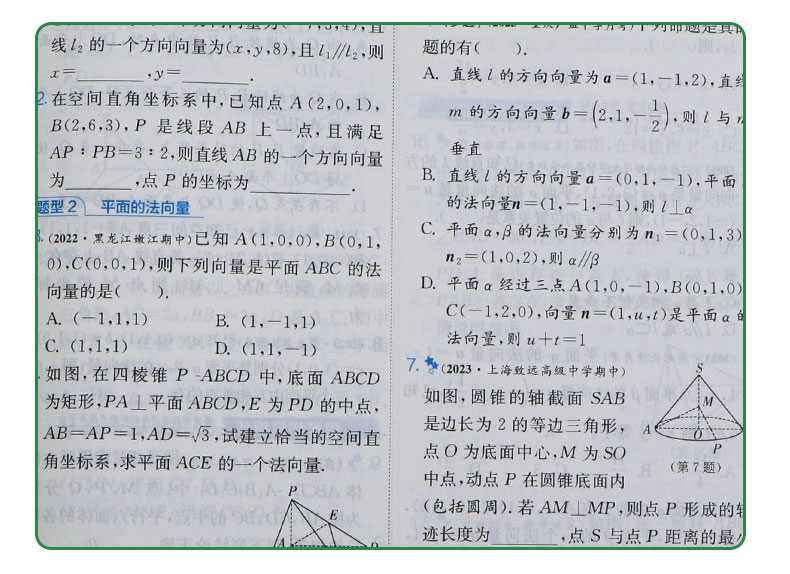 线l₂的一个方向向量为(x,y,8),且l₁//l₂,则
x=________,y=________.
2.在空间直角坐标系中,已知点A(2,0,1),
B(2,6,3),P是线段AB上一点,且满足
AP∶PB=3∶2,则直线AB的一个方向向量
为________,点P的坐标为________.
题型2 平面的法向量
(2022·黑龙江嫩江期中)已知A(1,0,0),B(0,1,
0),C(0,0,1),则下列向量是平面ABC的法
向量的是( ).
A. (-1,1,1) B. (1,-1,1)
C. (1,1,1) D. (1,1,-1)
如图,在四棱锥P-ABCD中,底面ABCD
为矩形,PA⊥平面ABCD,E为PD的中点,
AB=AP=1,AD=√3,试建立恰当的空间直
角坐标系,求平面ACE的一个法向量.
P
E
A
题的有( ).
A. 直线l的方向向量为a=(1,-1,2),直线
m的方向向量b=(2,1,-1/2),则l与m
垂直
B. 直线l的方向向量a=(0,1,-1),平面
的法向量n=(1,-1,-1),则l⊥α
C. 平面α,β的法向量分别为n₁=(0,1,3)
n₂=(1,0,2),则α//β
D. 平面α经过三点A(1,0,-1),B(0,1,0)
C(-1,2,0),向量n=(1,u,t)是平面α的
法向量,则u+t=1
7. (2023·上海致远高级中学期中)
如图,圆锥的轴截面SAB
是边长为2的等边三角形,
点O为底面中心,M为SO
中点,动点P在圆锥底面内
(包括圆周).若AM⊥MP,则点P形成的轨
迹长度为________,点S与点P距离的最
S
M
A
O
P
(第7题)